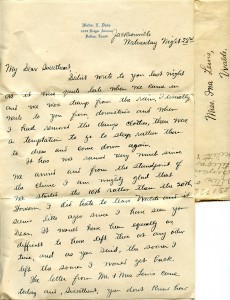 Walter E. Davis
Dallas, Texas
Jacksonville
Wednesday Night 25th
My Dear Sweetheart,
Didn't write to you last night
as it was quite late when we came in
and as I was damp from the rain, I usually
write to you from downstairs and when
I had removed the damp clothes, then was
a temptation to go to sleep rather than
to dress and come down again.
It has not rained very much since
we arrived and from the standpoint of
the claim I am mighty glad that
we started the 18th rather than the 20th,
however I did hate to leave Waco and it
seems like ages since I have seen you
Dear. It would have been equally as
difficult to have left then at any other
time and as you said, the sooner I
left the sooner I would get back.
The letter from Mr & Mrs Lewis came
today and, Sweetheart, you don't know how
Miss Ina Lewis,